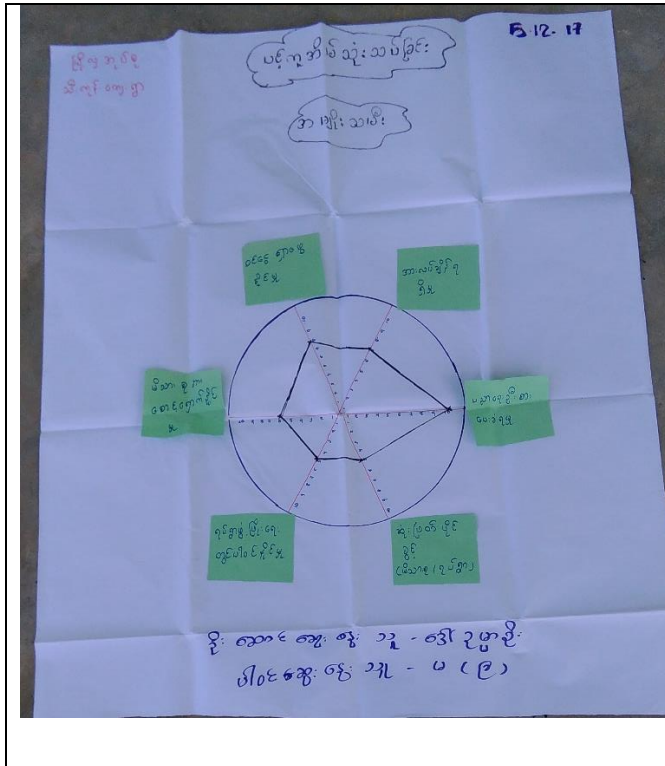 5.12.17
ပင့်ကူအိမ်သုံးသပ်ခြင်း
အမျိုးသမီး
ဝင်ငွေ ရှာဖွေ
နိုင်မှု
အားလပ်ချိန် ရ
ရှိမှု
မိသားစုက
စောင့်ရှောက်နိုင်
မှု
ပညာရေးဦးစား
ပေးခံရမှု
ရပ်ရွာဖွံ့ဖြိုးရေး
တွင်ပါဝင်နိုင်မှု
ဆုံးဖြတ်ပိုင်
ခွင့်
(မိသားစု/ရပ်ရွာ)
ဦးဆောင်ဆွေးနွေးသူ - ဒေါ်ဥမ္မာစိုး
ပါဝင်ဆွေးနွေးသူ - မ (၉)